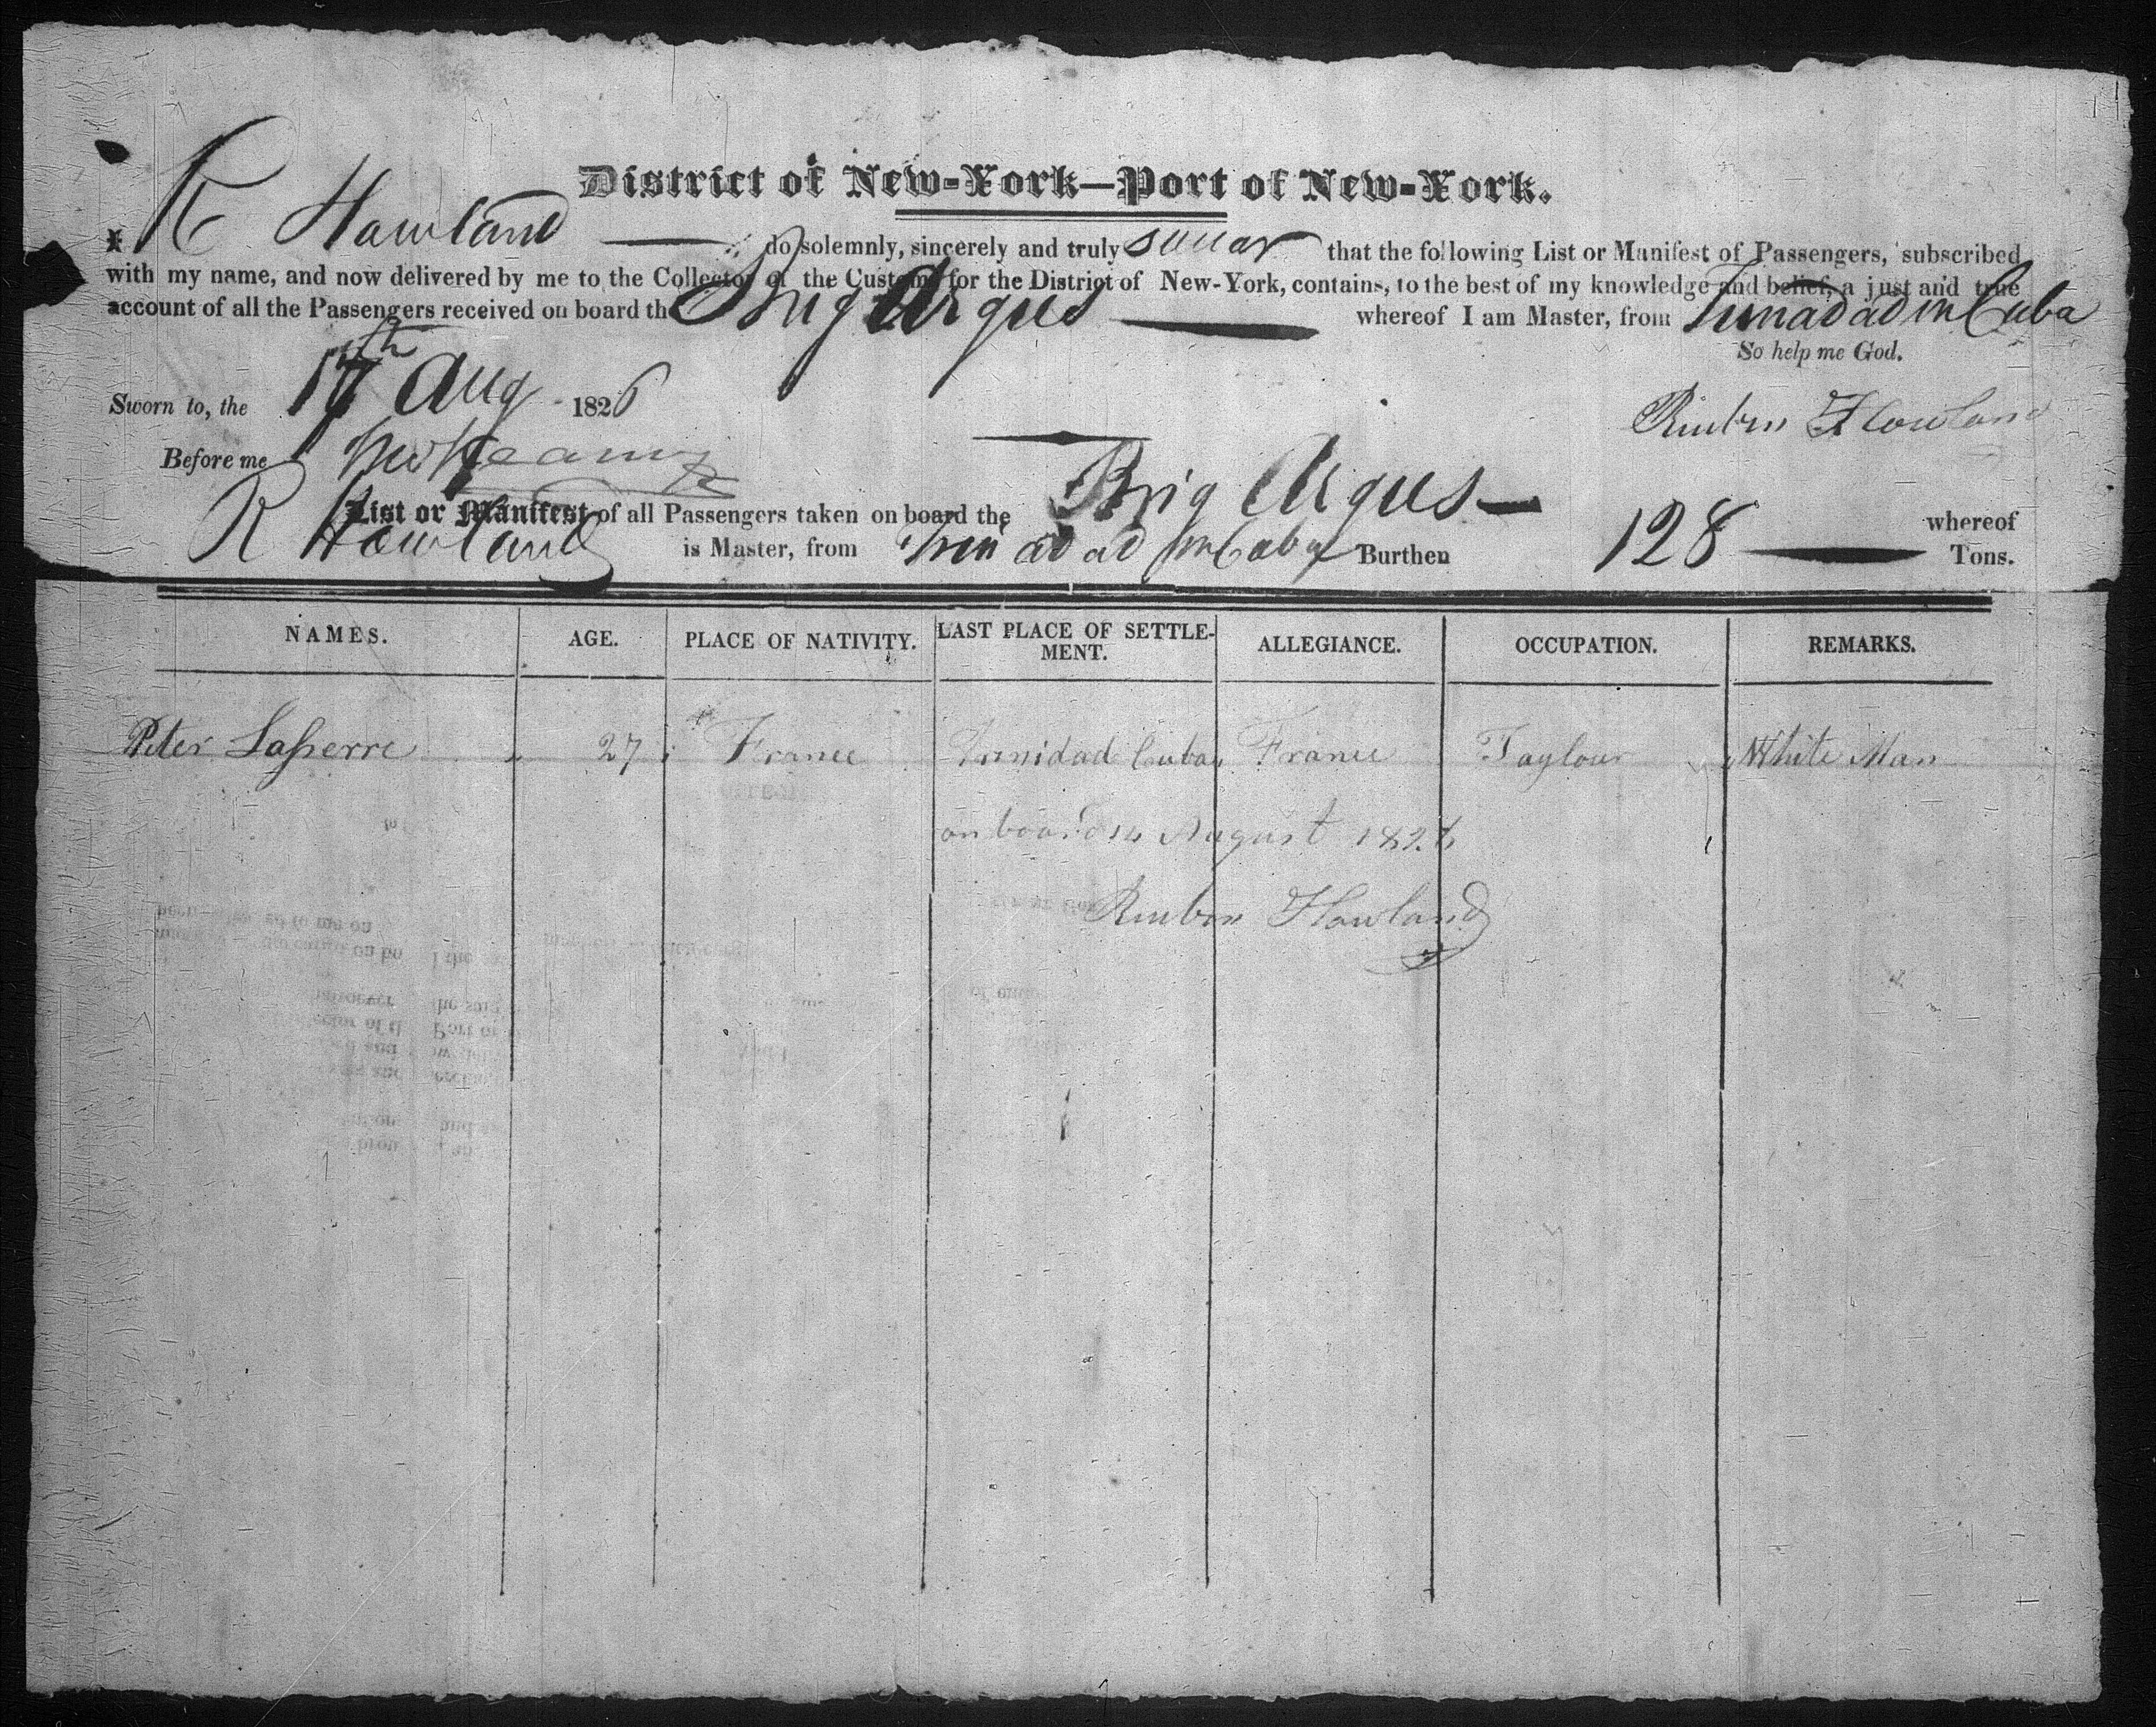 District of New-York—Port of New-York.
I, R Howland — do solemnly, sincerely and truly swear that the following List or Manifest of Passengers, subscribed
with my name, and now delivered by me to the Collector of the Customs for the District of New-York, contains, to the best of my knowledge and belief, a just and true
account of all the Passengers received on board the Brig Argus — whereof I am Master, from Trinadad in Cuba
So help me God.
Sworn to, the 17th Aug 1826
Reuben Howland
Before me
List or Manifest of all Passengers taken on board the Brig Argus — whereof
R Howland is Master, from Trinadad in Cuba Burthen 128 — Tons.
NAMES. AGE. PLACE OF NATIVITY. LAST PLACE OF SETTLE-MENT. ALLEGIANCE. OCCUPATION. REMARKS.
Peter Lasserre 27 France Trinidad Cuba France Taylour White Man
on board 14 August 1826
Reuben Howland